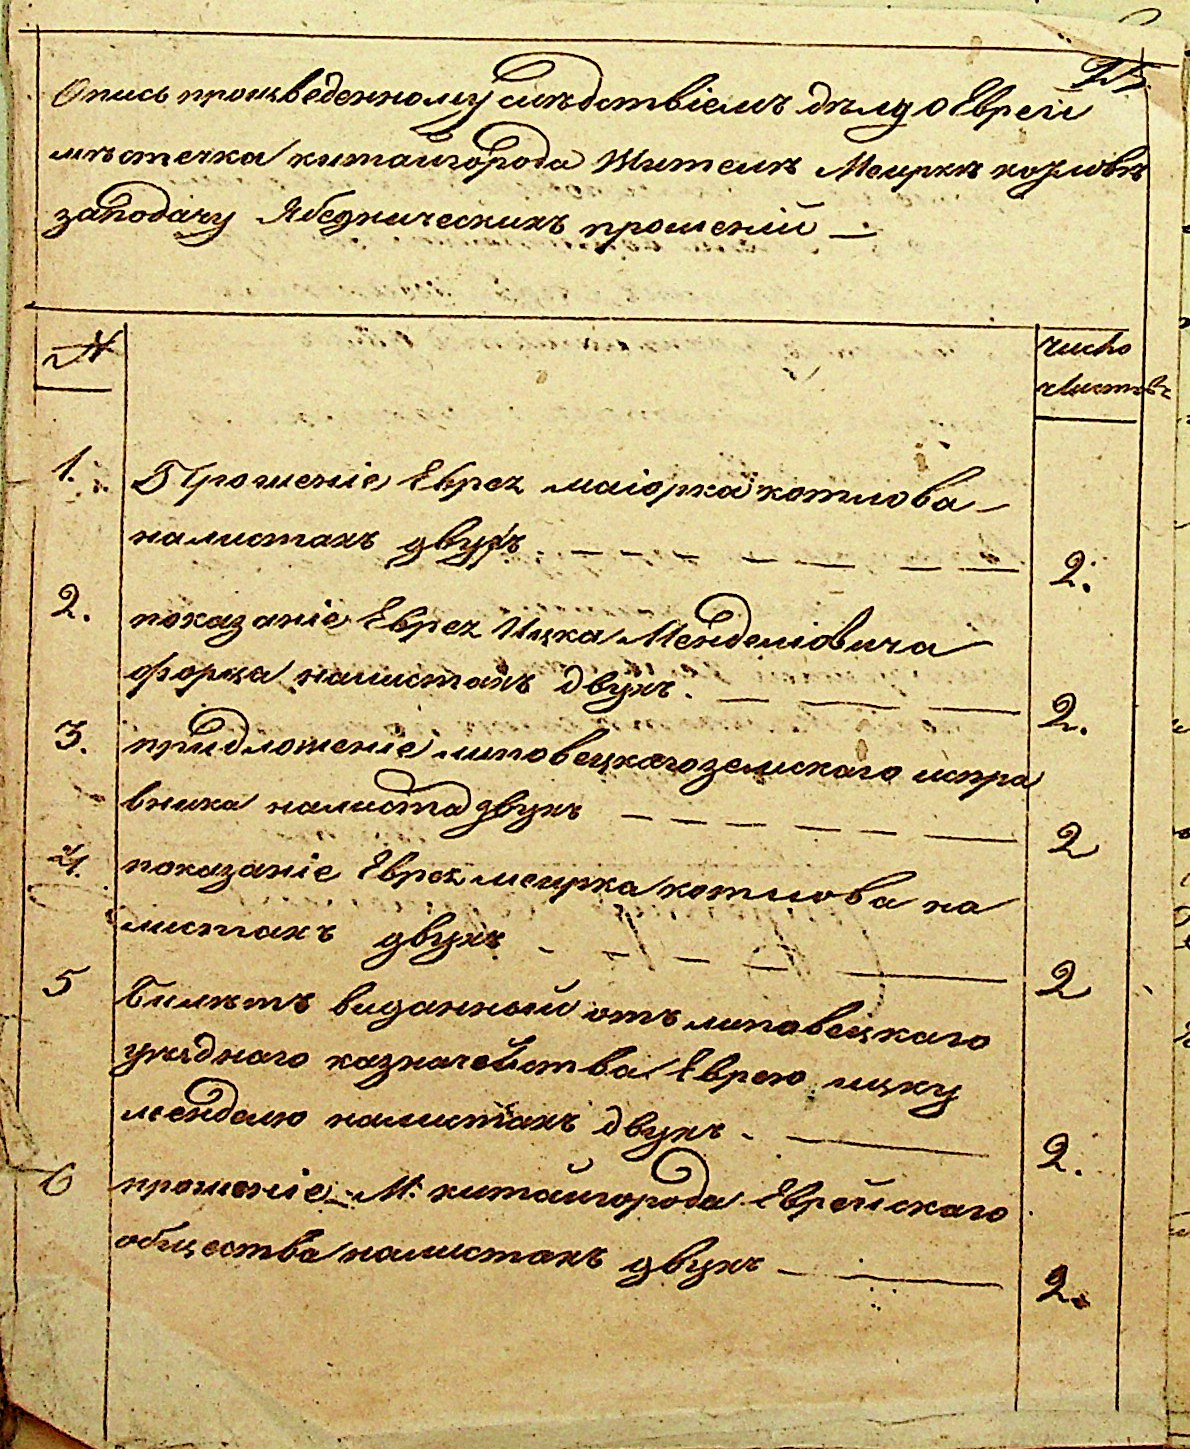 15.
Опись произведенному слѣдствіемъ дѣлу о Евреи
мѣстечка китаигорода Жителѣ Меиркѣ котловѣ
заподачу Ябедническихъ прошеній —
№
число
листовъ
1. Прошеніе Еврея маіорка котлова
налистахъ двухъ. 2.
2. показаніе Еврея Ицка Менделіовича
форца налистахъ двухъ. 2.
3. придложеніе липовецкагоземскаго испра
вника налиста двухъ 2
4. показаніе Еврея меирка котлова на
листахъ двухъ 2
5 Билѣтъ виданный отъ липовецкаго
уезднаго казначейства Еврею ицку
менделю налистахъ двухъ. 2.
6 прошеніе М: китаигорода Еврейскаго
общества налистахъ двухъ 2.